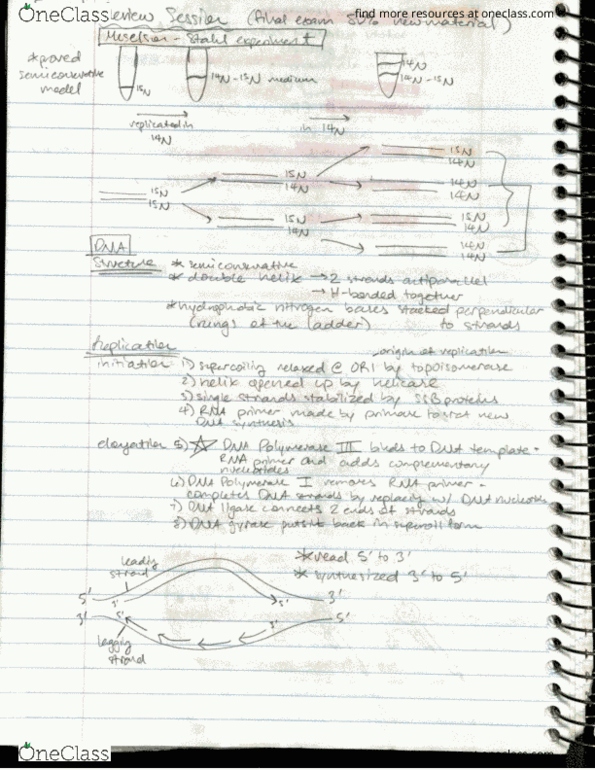 OneClass
find more resources at oneclass.com
Review Session (final exam 50% new material)
Meselson - Stahl experiment
*proved
semiconservative
model
15N
14N-15N medium
14N
14N-15N
replicated in
14N
in 14N
15N
14N
15N
14N
15N
15N
14N
14N
15N
14N
15N
14N
14N
14N
DNA
Structure * semiconservative
* double helix → 2 strands antiparallel
→ H-bonded together
*hydrophobic nitrogen bases stacked perpendicular
(rungs of the ladder) to strands
Replication
origin of replication
initiation 1) supercoiling relaxed @ ORI by topoisomerase
2) helix opened up by helicase
3) single strands stabilized by SSB proteins
4) RNA primer made by primase to start new
DNA synthesis
elongation 5) ☆ DNA Polymerase III binds to DNA template +
RNA primer and adds complementary
nucleotides
6) DNA Polymerase I removes RNA primer +
completes DNA strands by replacing w/ DNA nucleotides
7) DNA ligase connects 2 ends of strands
8) DNA gyrase puts it back in supercoil form
*read 5' to 3'
* synthesized 3' to 5'
leading
strand
5'
3'
5'
3'
3'
5'
3'
5'
lagging
strand
OneClass